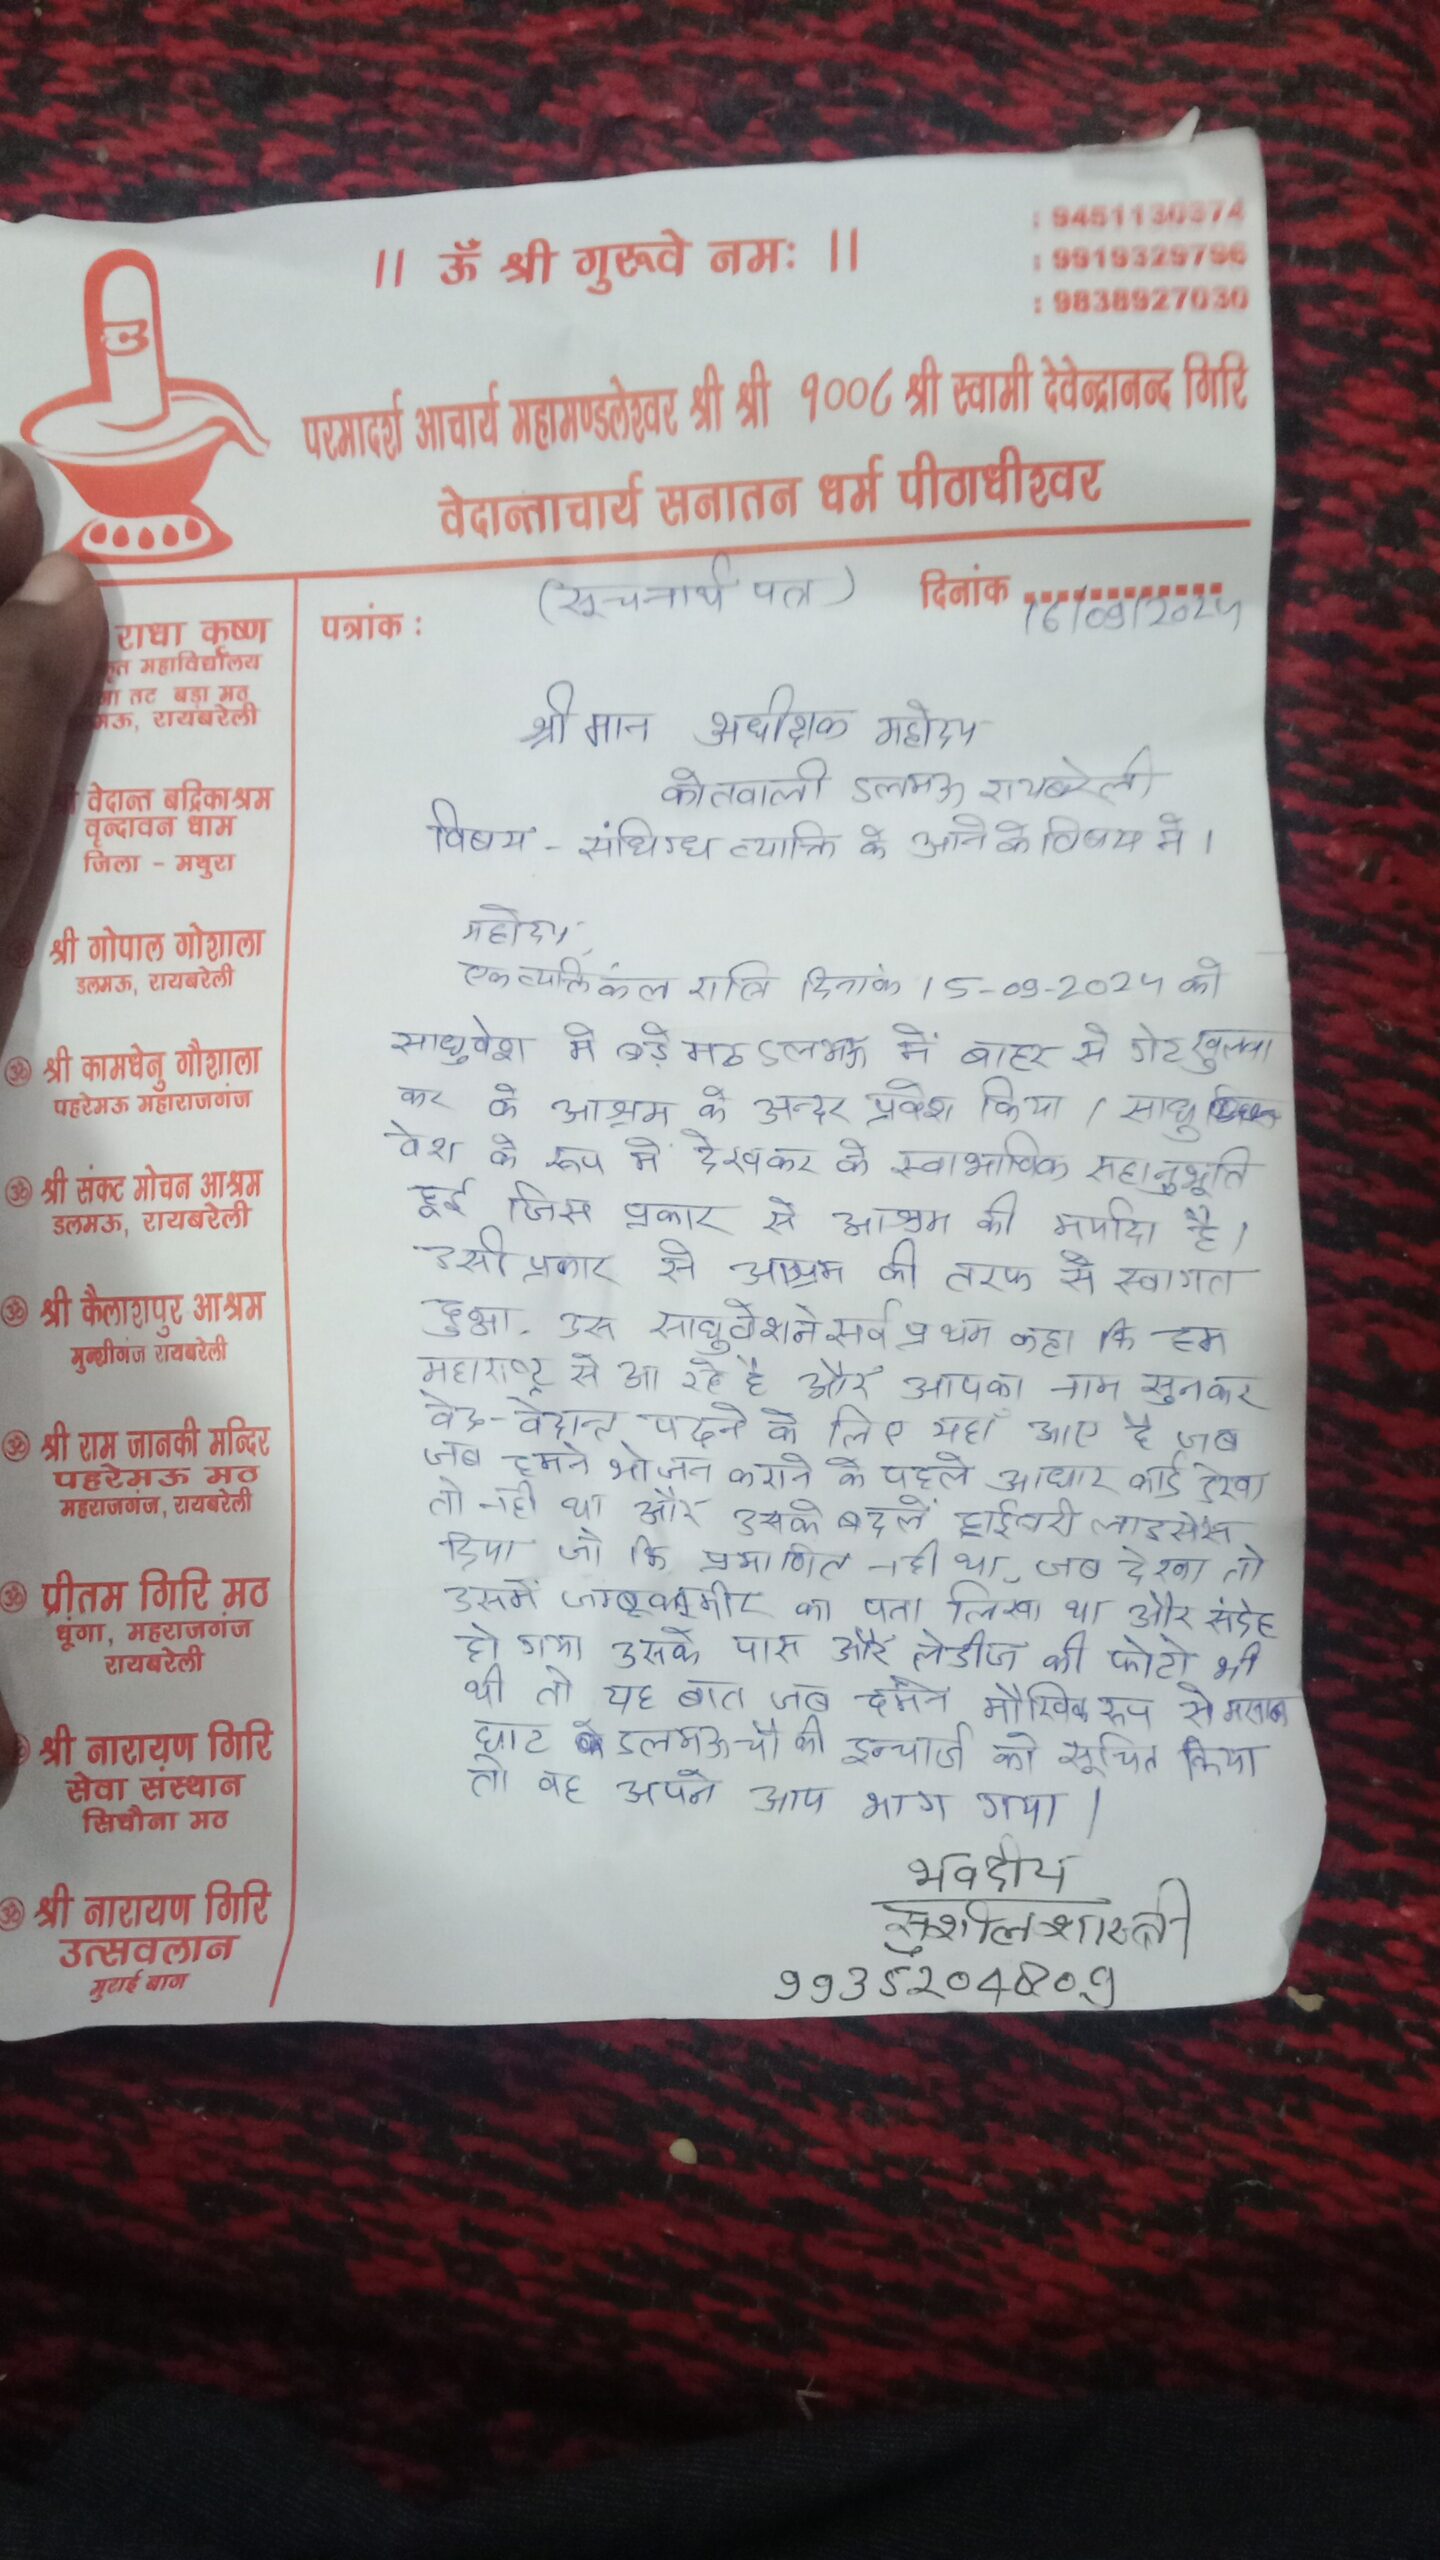 || ॐ श्री गुरुवे नमः ||
: 9451130374
: 9919329796
: 9838927030
परमादर्श आचार्य महामण्डलेश्वर श्री श्री १००८ श्री स्वामी देवेन्द्रानन्द गिरि
वेदान्ताचार्य सनातन धर्म पीठाधीश्वर
राधा कृष्ण
महाविद्यालय
तट बड़ा मठ
रायबरेली
वेदान्त बद्रिकाश्रम
वृन्दावन धाम
जिला - मथुरा
श्री गोपाल गोशाला
डलमऊ, रायबरेली
श्री कामधेनु गौशाला
पहरेमऊ महाराजगंज
श्री संकट मोचन आश्रम
डलमऊ, रायबरेली
श्री कैलाशपुर आश्रम
मुन्शीगंज रायबरेली
श्री राम जानकी मन्दिर
पहरेमऊ मठ
महराजगंज, रायबरेली
प्रीतम गिरि मठ
धूंगा, महराजगंज
रायबरेली
श्री नारायण गिरि
सेवा संस्थान
सिचौना मठ
श्री नारायण गिरि
उत्सवलान
मुराई बाग
पत्रांक :
(सूचनार्थ पत्र)
दिनांक 16/09/2025
श्रीमान अधीक्षक महोदय
कोतवाली डलमऊ रायबरेली
विषय - संधिग्ध व्यक्ति के आने के विषय में।
महोदय,
एक व्यक्ति कल रात्रि दिनांक 15-09-2025 को
साधुवेश में बड़े मठ डलमऊ में बाहर से गेट खुलवा
कर के आश्रम के अन्दर प्रवेश किया। साधु
वेश के रूप में देखकर के स्वाभाविक सहानुभूति
हुई जिस प्रकार से आश्रम की मर्यादा है।
उसी प्रकार से आश्रम की तरफ से स्वागत
हुआ. उस साधुवेश ने सर्व प्रथम कहा कि हम
महाराष्ट्र से आ रहे है और आपका नाम सुनकर
वेद-वेदान्त पढ़ने के लिए यहां आए है जब
जब हमने भोजन कराने के पहले आधार कार्ड देखा
तो नही था और उसके बदले ड्राईवरी लाइसेंस
दिया जो कि प्रमाणित नही था, जब देखा तो
उसमें जम्बूकश्मीर का पता लिखा था और संदेह
हो गया उसके पास और लेडीज की फोटो भी
थी तो यह बात जब हमने मौखिक रूप से
घाट डलमऊ चौकी इन्चार्ज को सूचित किया
तो वह अपने आप भाग गया।
भवदीय
सुशील शास्त्री
9935204809